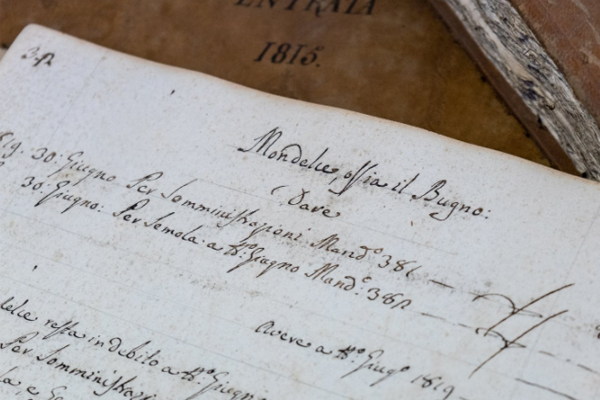 ENTRATA
1815.
Mondelce ossia il Bugno:
Dare
1819. 30: Giugno Per Somministrazioni: Mand.º 381
30: Giugno: Per Semola: a Giugno Mand.º 381
avere a Giug.º 1819
resta in debito a Giugno
Per Somministrazi